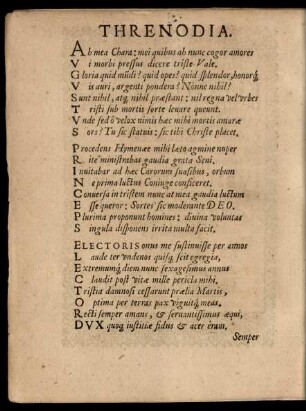 THRENODIA.
Ah mea Chara: mei quibus ah nunc cogor amores
Vi morbi pressus dicere triste Vale.
Gloria quid mūdi? quid opes? quid splendor, honorq́;
Vis auri, argenti pondera? Nonne nihil?
Sunt nihil, atq; nihil præstant: nil regna vel vrbes
Tristi sub mortis sorte levare queunt.
Vnde sed ô velox nimis hæc mihi mortis amaræ
Sors? Tu sic statuis: sic tibi Christe placet.
Procedens Hymenæe mihi læto agmine nuper
Rite ministrabas gaudia grata Seni.
Invitabar ad hæc Carorum suasibus, orbam
Ne prima luctus Coniuge conficeret.
Conversa in tristem nunc at mea gaudia luctum
Esse queror: Sortes sic moderante DEO.
Plurima proponunt homines: divina voluntas
Singula disponens irrita multa facit.
ELECTORIS onus me sustinuisse per annos
Laude ter vndenos quisq; scit egregia,
Extremumq́; diem nunc sexagesimus annus
Claudit post vitæ mille pericla mihi,
Tristia damnosi cessarunt prælia Martis,
Optima per terras pax viguitq́; meas.
Recti semper amans, & servantissimus æqui,
DVX quoq; iustitiæ fidus & acer eram.
Semper